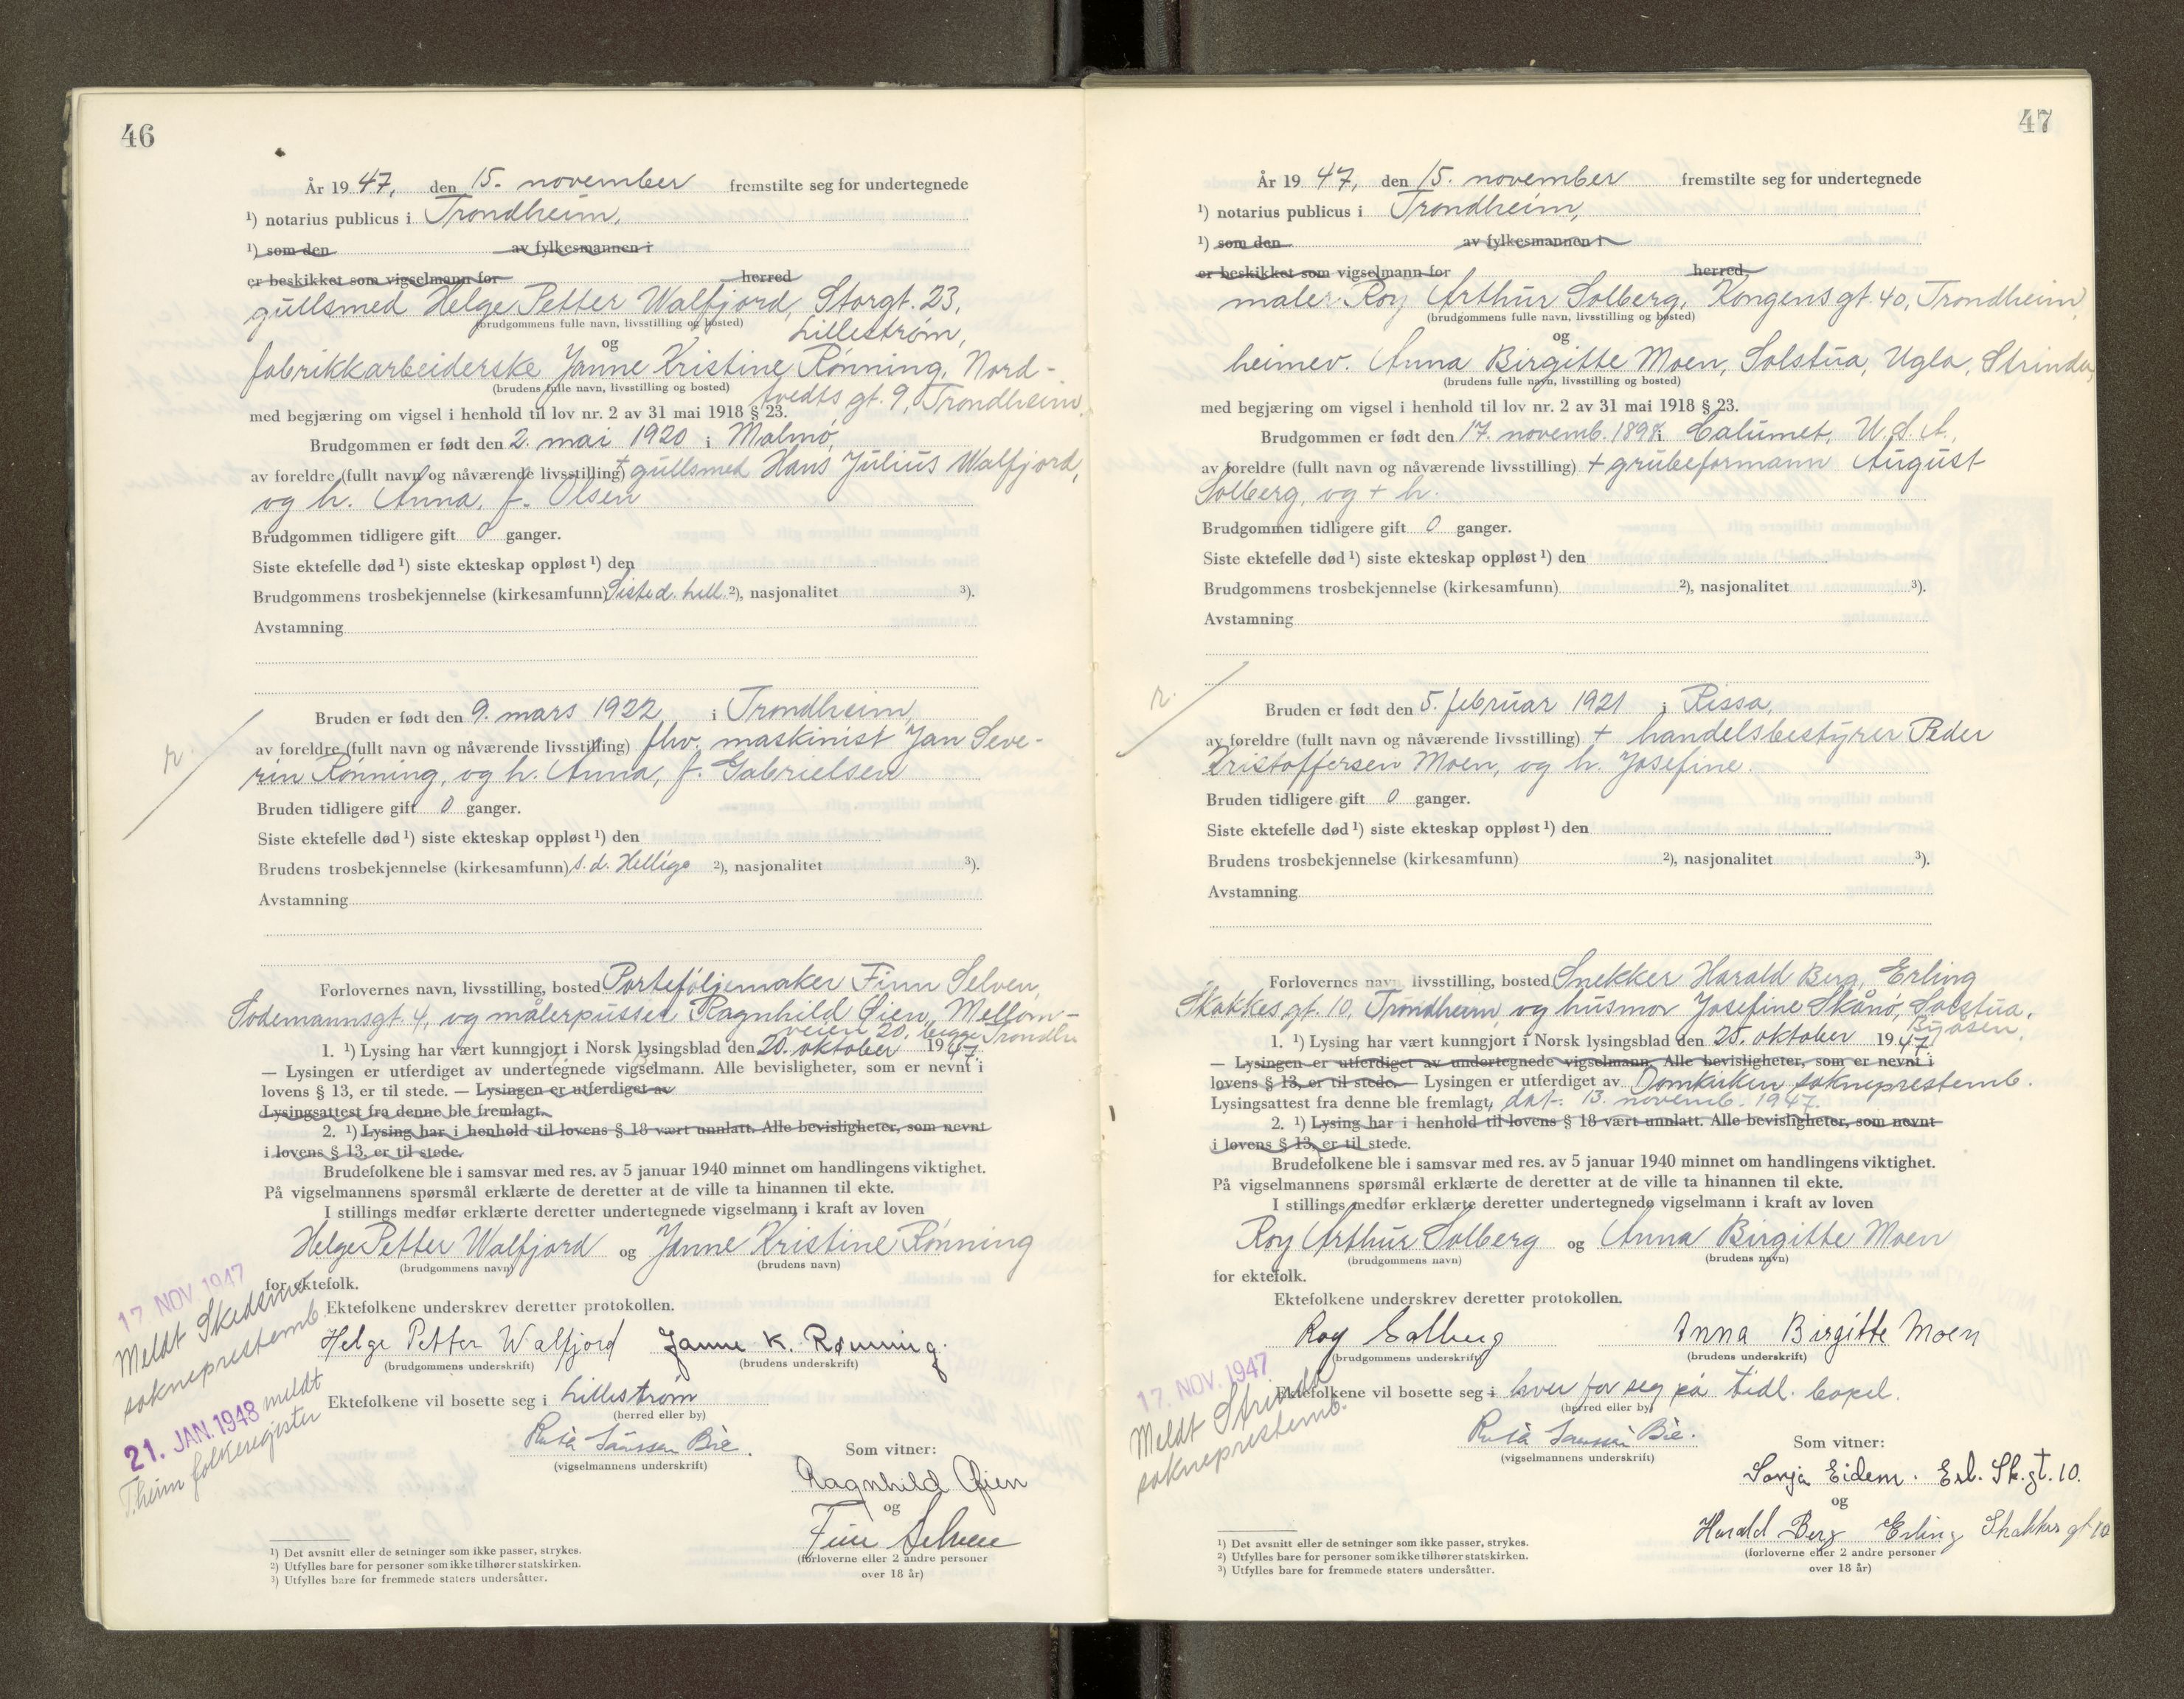 46
År 1947, den 15. november fremstilte seg for undertegnede
¹) notarius publicus i Trondheim,
¹) som den av fylkesmannen i
er beskikket som vigselmann for herred
gullsmed Helge Petter Walfjord, Storgt. 23,
(brudgommens fulle navn, livsstilling og bosted) Lillestrøm,
og
fabrikkarbeiderske Janne Kristine Rønning, Nord-
(brudens fulle navn, livsstilling og bosted)
tvedts gt. 9, Trondheim,
med begjæring om vigsel i henhold til lov nr. 2 av 31 mai 1918 § 23.
Brudgommen er født den 2. mai 1920 i Malmø,
av foreldre (fullt navn og nåværende livsstilling) + gullsmed Hans Julius Walfjord,
og h. Anna, f. Olsen
Brudgommen tidligere gift 0 ganger.
Siste ektefelle død ¹) siste ekteskap oppløst ¹) den
Brudgommens trosbekjennelse (kirkesamfunn) Sisted. hell. ²), nasjonalitet ³).
Avstamning
r.
Bruden er født den 9. mars 1922 i Trondheim,
av foreldre (fullt navn og nåværende livsstilling) fhv. maskinist Jan Seve-
rin Rønning, og h. Anna, f. Gabrielsen
Bruden tidligere gift 0 ganger.
Siste ektefelle død ¹) siste ekteskap oppløst ¹) den
Brudens trosbekjennelse (kirkesamfunn) s. d. Hellige ²), nasjonalitet ³).
Avstamning
Forlovernes navn, livsstilling, bosted Porteføljemaker Finn Selven,
Sodemannsgt. 4, og målerpusser Ragnhild Øien, Mellom-
veien 20, begge Trondh.
1. ¹) Lysing har vært kunngjort i Norsk lysingsblad den 20. oktober 1947.
— Lysingen er utferdiget av undertegnede vigselmann. Alle bevisligheter, som er nevnt i
lovens § 13, er til stede. — Lysingen er utferdiget av
Lysingsattest fra denne ble fremlagt.
2. ¹) Lysing har i henhold til lovens § 18 vært unnlatt. Alle bevisligheter, som nevnt
i lovens § 13, er til stede.
Brudefolkene ble i samsvar med res. av 5 januar 1940 minnet om handlingens viktighet.
På vigselmannens spørsmål erklærte de deretter at de ville ta hinannen til ekte.
I stillings medfør erklærte deretter undertegnede vigselmann i kraft av loven
Helge Petter Walfjord og Janne Kristine Rønning
(brudgommens navn) (brudens navn)
for ektefolk.
Ektefolkene underskrev deretter protokollen.
Helge Petter Walfjord Janne K. Rønning.
(brudgommens underskrift) (brudens underskrift)
Ektefolkene vil bosette seg i Lillestrøm
(herred eller by)
(vigselmannens underskrift)
Som vitner:
Ragnhild Øien
og
Finn Selven
(forloverne eller 2 andre personer
over 18 år)
17 NOV. 1947
Meldt Skedsmo
sokneprestemb.
21. JAN. 1948 meldt
T.heim folkeregister
¹) Det avsnitt eller de setninger som ikke passer, strykes.
²) Utfylles bare for personer som ikke tilhører statskirken.
³) Utfylles bare for fremmede staters undersåtter.
47
År 1947, den 15. november fremstilte seg for undertegnede
¹) notarius publicus i Trondheim,
¹) som den av fylkesmannen i
er beskikket som vigselmann for herred
maler Roy Arthur Solberg, Kongensgt. 40, Trondheim,
(brudgommens fulle navn, livsstilling og bosted)
og
heimev. Anna Birgitte Moen, Solstua, Ugla, Strinda,
(brudens fulle navn, livsstilling og bosted)
med begjæring om vigsel i henhold til lov nr. 2 av 31 mai 1918 § 23.
Brudgommen er født den 17. novemb. 1898 i Calumet, U.S.A.,
av foreldre (fullt navn og nåværende livsstilling) + grubeformann August
Solberg, og + h.
Brudgommen tidligere gift 0 ganger.
Siste ektefelle død ¹) siste ekteskap oppløst ¹) den
Brudgommens trosbekjennelse (kirkesamfunn) ²), nasjonalitet ³).
Avstamning
r.
Bruden er født den 5. februar 1921 i Rissa,
av foreldre (fullt navn og nåværende livsstilling) + handelsbestyrer Peder
Kristoffersen Moen, og h. Josefine.
Bruden tidligere gift 0 ganger.
Siste ektefelle død ¹) siste ekteskap oppløst ¹) den
Brudens trosbekjennelse (kirkesamfunn) ²), nasjonalitet ³).
Avstamning
Forlovernes navn, livsstilling, bosted Snekker Harald Berg, Erling
Skakkes gt. 10, Trondheim, og husmor Josefine Skånø, Solstua,
Byåsen.
1. ¹) Lysing har vært kunngjort i Norsk lysingsblad den 25. oktober 1947.
— Lysingen er utferdiget av undertegnede vigselmann. Alle bevisligheter, som er nevnt i
lovens § 13, er til stede. — Lysingen er utferdiget av Domkirken sokneprestemb.
Lysingsattest fra denne ble fremlagt, dat. 13. novemb. 1947.
2. ¹) Lysing har i henhold til lovens § 18 vært unnlatt. Alle bevisligheter, som nevnt
i lovens § 13, er til stede.
Brudefolkene ble i samsvar med res. av 5 januar 1940 minnet om handlingens viktighet.
På vigselmannens spørsmål erklærte de deretter at de ville ta hinannen til ekte.
I stillings medfør erklærte deretter undertegnede vigselmann i kraft av loven
Roy Arthur Solberg og Anna Birgitte Moen
(brudgommens navn) (brudens navn)
for ektefolk.
Ektefolkene underskrev deretter protokollen.
Roy Solberg Anna Birgitte Moen
(brudgommens underskrift) (brudens underskrift)
Ektefolkene vil bosette seg i hver for seg på tidl. bopel.
(herred eller by)
(vigselmannens underskrift)
Som vitner:
Sonja Eidem. Erl. Sk.gt. 10.
og
Harald Berg Erling Skakkes gt 10
(forloverne eller 2 andre personer
over 18 år)
17. NOV. 1947
Meldt Strinda
sokneprestemb.
¹) Det avsnitt eller de setninger som ikke passer, strykes.
²) Utfylles bare for personer som ikke tilhører statskirken.
³) Utfylles bare for fremmede staters undersåtter.